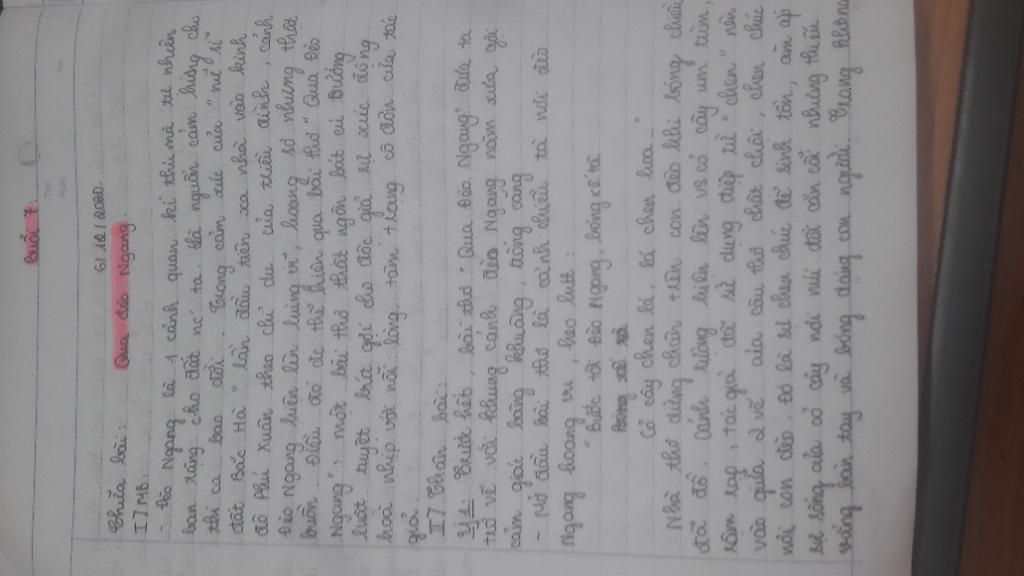 Buổi 7.
6/12/2020.
Chữa bài: Qua đèo Ngang
I/ MB.
- Đèo Ngang là 1 cảnh quan kì thú mà tự nhiên
ban tặng cho đất nc ta. Đã nguồn cảm hứng cho
thi ca bao đời. Trong cảm xúc của "nữ sĩ
đất Bắc Hà" lần đầu tiên xa nhà vào kinh
đô Phú Xuân theo chỉ dụ của triều đình, cảnh
Đèo Ngang hiện lên hùng vĩ, hoang sơ nhưng thật
buồn. Điều đó đc thể hiện qua bài thơ "Qua Đèo
Ngang": một bài thơ thất ngôn bát cú Đường
luật tuyệt bút gợi cho độc giả sự xúc động
hoài nhịp với nỗi lòng, tâm trạng cô đơn của tác
giả.
II/ Thân bài:
Trước hết, bài thơ "Qua Đèo Ngang" đưa ta
trở về với khung cảnh đèo Ngang năm xưa gợi
cảm giác bâng khuâng, trống vắng
- Mở đầu bài thơ là cảnh chiều tà nơi đèo
Ngang hoang vu, heo hút:
"Bước tới Đèo Ngang, bóng xế tà
Cỏ cây chen lá, đá chen hoa..."
Nhà thơ dừng chân trên con đèo khi bóng chiều
đã đổ. Cảnh tượng hiện lên vs cỏ cây um tùm,
rậm rạp, tác giả đã sử dụng điệp từ "chen" nằm
vào giữa 2 vế của câu thơ chật chội, chen chúc
nơi con đèo. Đó là sự chen chúc để sinh tồn, ấm áp
sự sống của cỏ cây nơi núi đồi cằn cỗi nhưng thiếu
vắng bàn tay và bóng dáng con người. Trong không